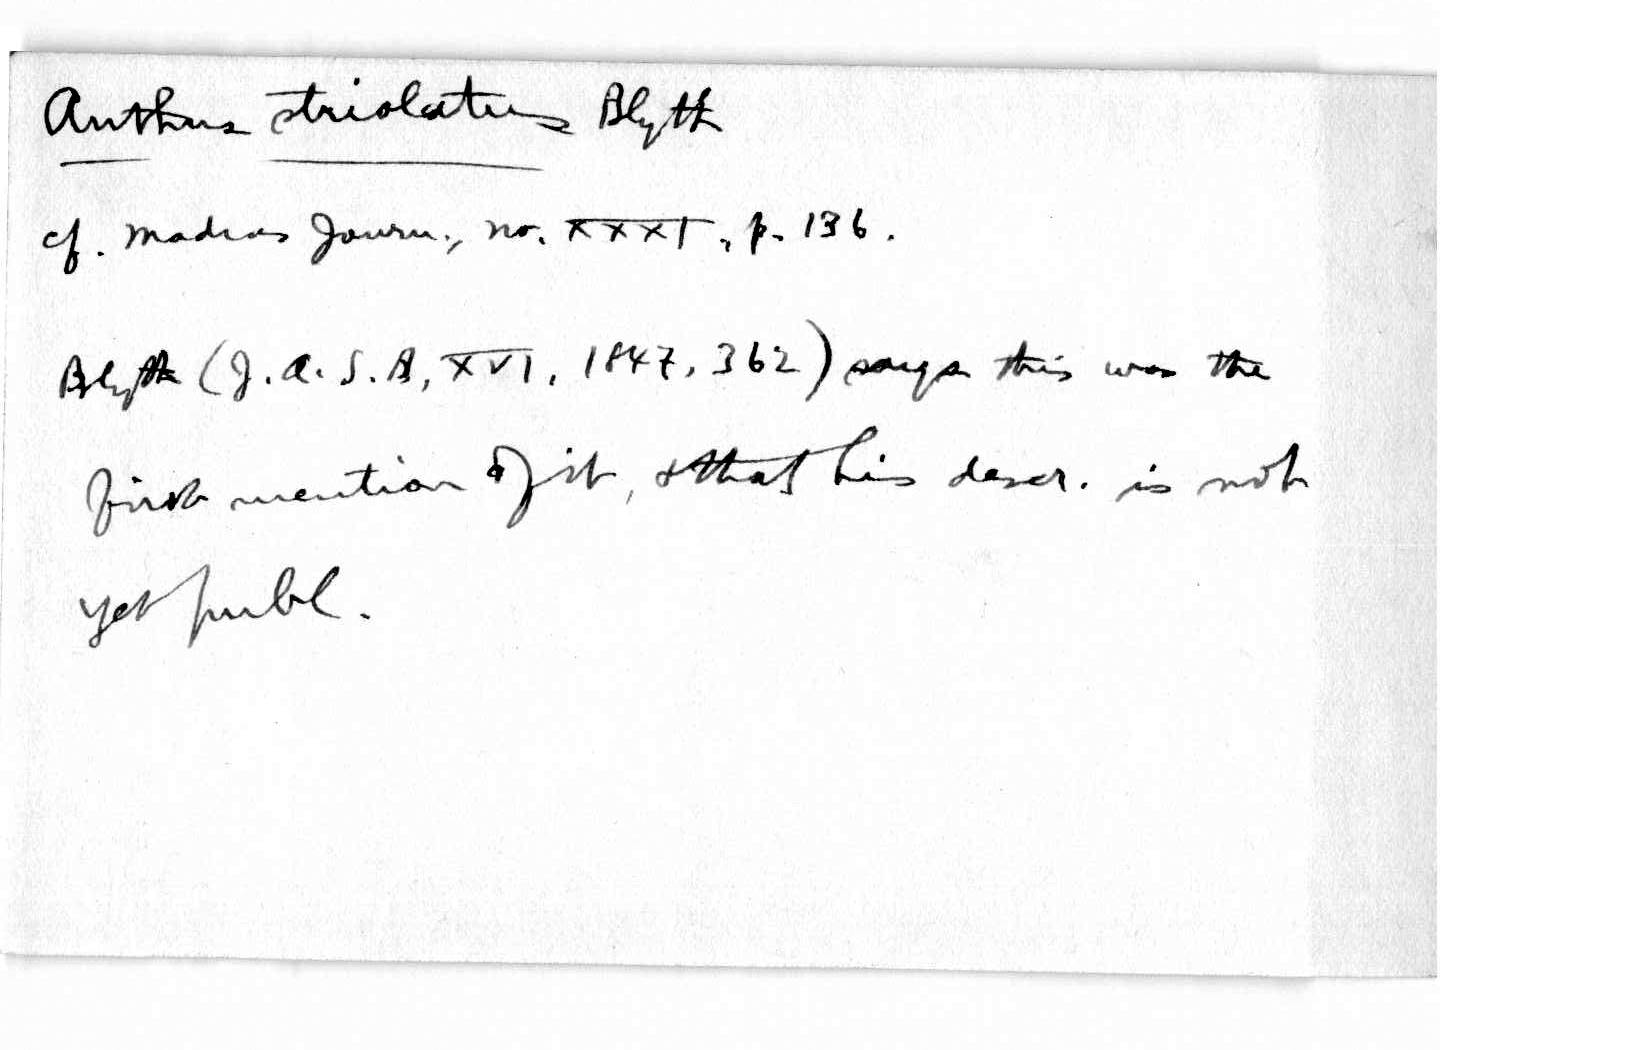 Anthus striolatus Blyth
cf. Madras Journ., no. XXXI, p. 136.
Blyth (J.A.S.B, XVI, 1847, 362) says this was the
first mention of it, & that his descr. is not
yet publ.